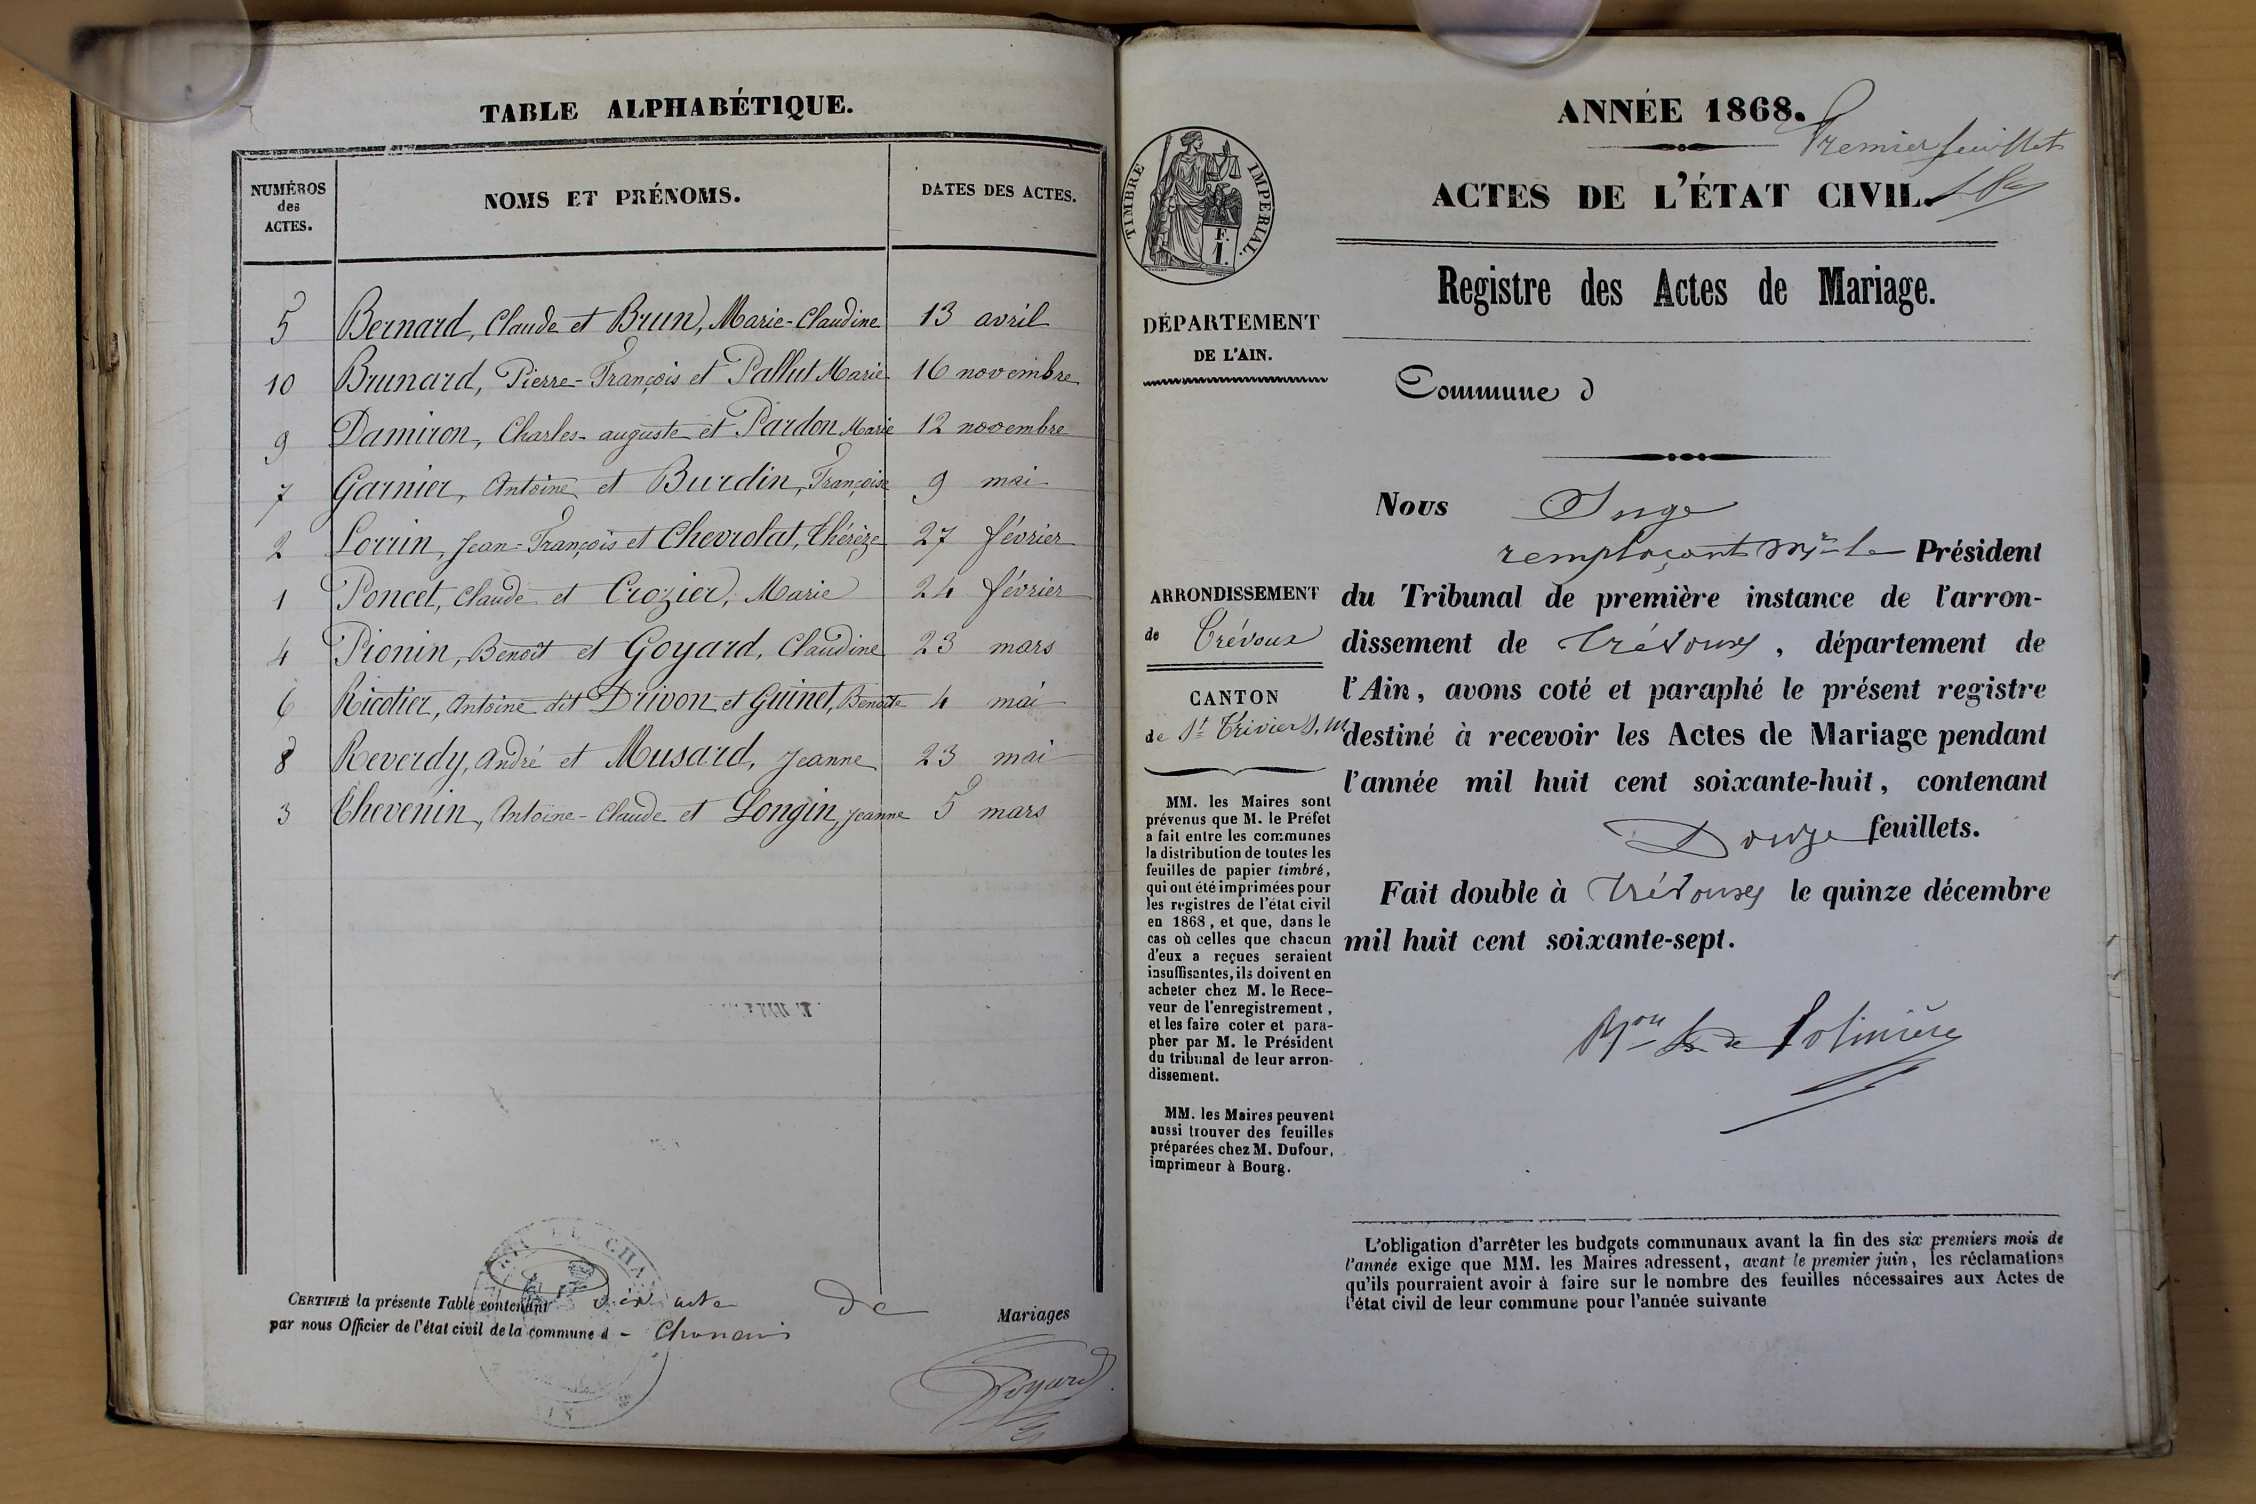 TABLE ALPHABÉTIQUE.
NUMÉROS
des
ACTES.
NOMS ET PRÉNOMS.
DATES DES ACTES.
5 Bernard, Claude et Brun, Marie-Claudine 13 avril
10 Brunard, Pierre-François et Pallut Marie 16 novembre
9 Damiron, Charles-auguste et Pardon Marie 12 novembre
7 Garnier, Antoine et Burdin, Françoise 9 mai
2 Lorrin, Jean-François et Chevrolat, Thérèze 27 février
1 Poncet, Claude et Crozier, Marie 24 février
4 Pionin, Benoît et Goyard, Claudine 23 mars
6 Ricotier, Antoine dit Drivon et Guinet, Benoîte 4 mai
8 Reverdy, André et Musard, Jeanne 23 mai
3 Thevenin, Antoine-Claude et Longin, Jeanne 5 mars
CERTIFIÉ la présente Table contenant dix actes de Mariages
par nous Officier de l'état civil de la commune d
ANNÉE 1868.
Premier feuillet
ACTES DE L'ÉTAT CIVIL.
TIMBRE IMPERIAL.
F.
1.
Registre des Actes de Mariage.
DÉPARTEMENT
DE L'AIN.
Commune d
ARRONDISSEMENT
de Trévoux
CANTON
de St Trivier s. m
MM. les Maires sont
prévenus que M. le Préfet
a fait entre les communes
la distribution de toutes les
feuilles de papier timbré,
qui ont été imprimées pour
les registres de l'état civil
en 1868, et que, dans le
cas où celles que chacun
d'eux a reçues seraient
insuffisantes, ils doivent en
acheter chez M. le Rece-
veur de l'enregistrement,
et les faire coter et para-
pher par M. le Président
du tribunal de leur arron-
dissement.
MM. les Maires peuvent
aussi trouver des feuilles
préparées chez M. Dufour,
imprimeur à Bourg.
Nous Juge
remplaçant Mr le Président
du Tribunal de première instance de l'arron-
dissement de Trévoux, département de
l'Ain, avons coté et paraphé le présent registre
destiné à recevoir les Actes de Mariage pendant
l'année mil huit cent soixante-huit, contenant
Douze feuillets.
Fait double à Trévoux le quinze décembre
mil huit cent soixante-sept.
L'obligation d'arrêter les budgets communaux avant la fin des six premiers mois de
l'année exige que MM. les Maires adressent, avant le premier juin, les réclamations
qu'ils pourraient avoir à faire sur le nombre des feuilles nécessaires aux Actes de
l'état civil de leur commune pour l'année suivante